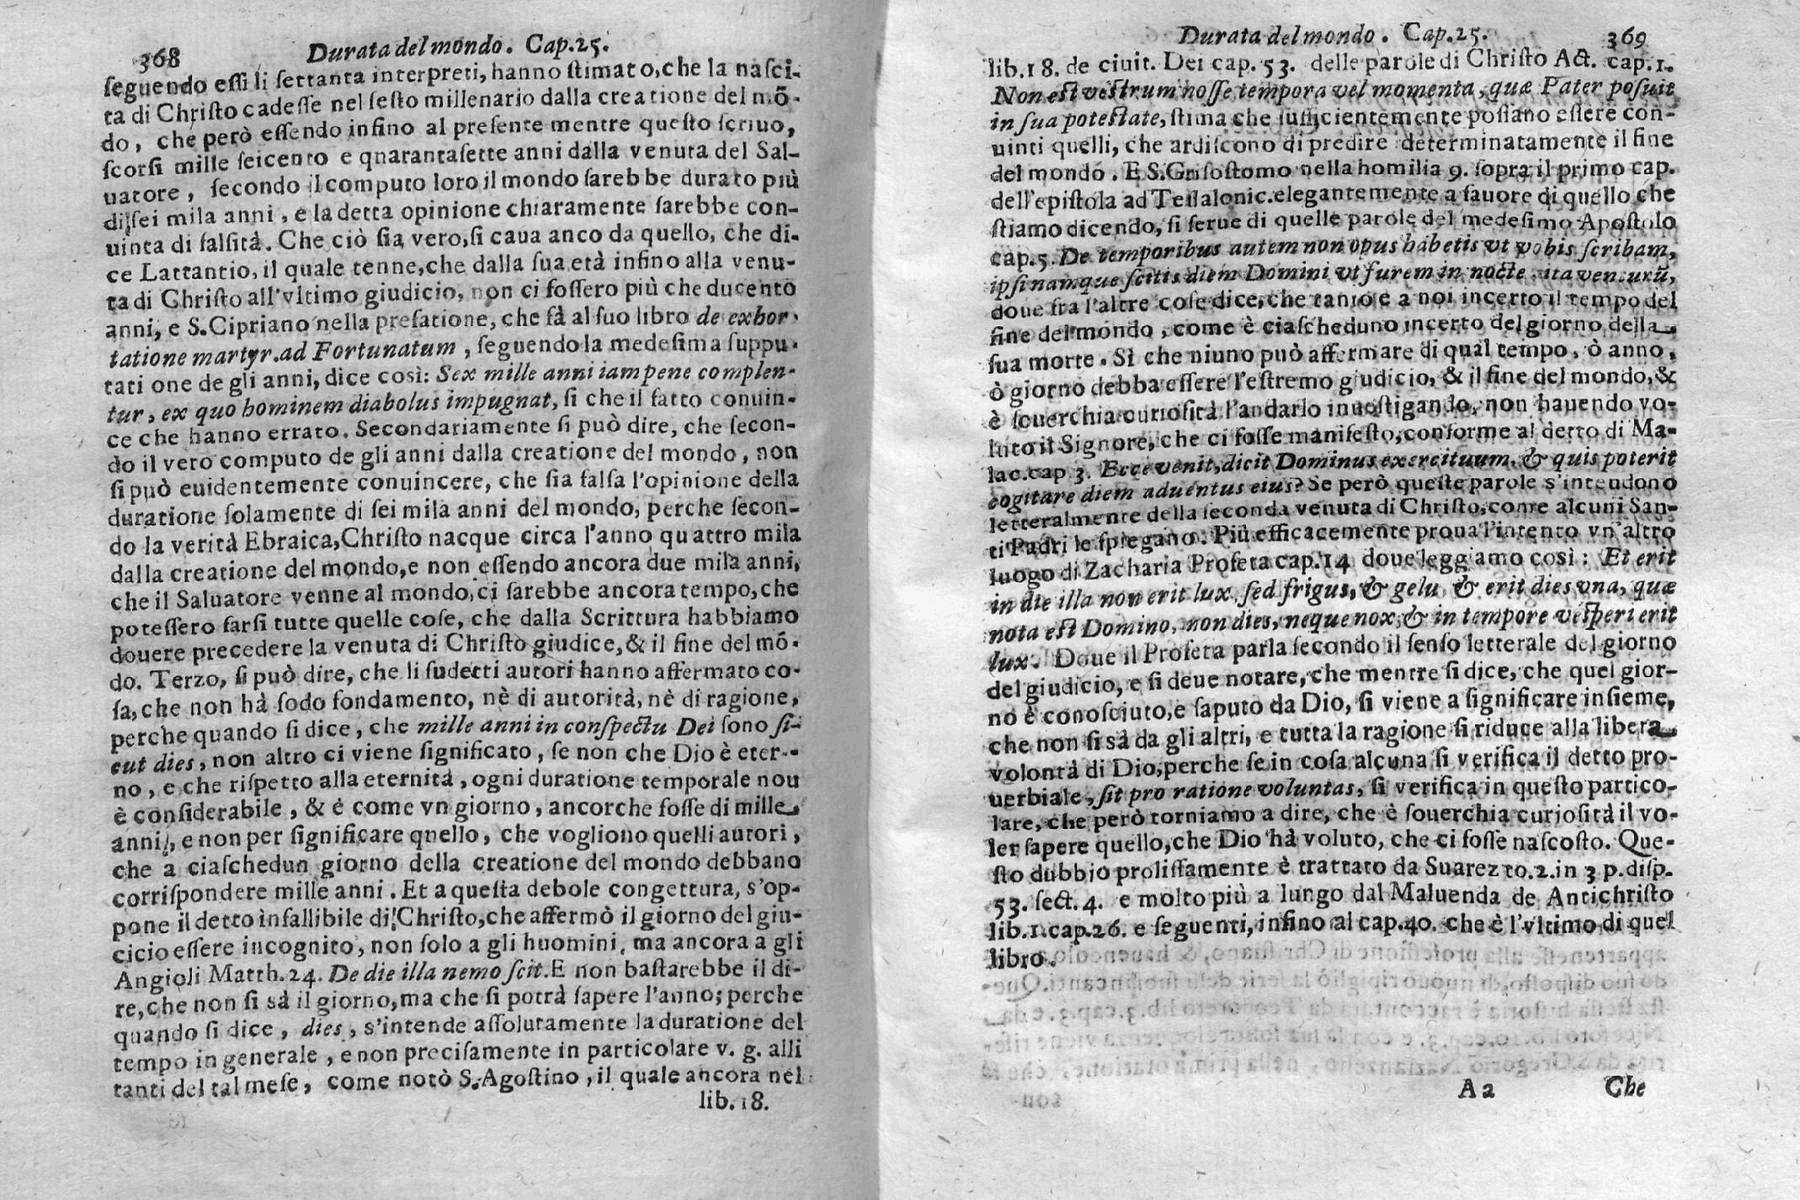 368 Durata del mondo. Cap.25.
ſeguendo eſſi li ſettanta interpreti, hanno ſtimato, che la naſci-
ta di Chriſto cadeſſe nel ſeſto millenario dalla creatione del mõ-
do, che però eſſendo inſino al preſente mentre queſto ſcriuo,
ſcorſi mille ſeicento e quarantaſette anni dalla venuta del Sal-
uatore, ſecondo il computo loro il mondo ſarebbe durato più
di ſei mila anni, e la detta opinione chiaramente ſarebbe con-
uinta di falſità. Che ciò ſia vero, ſi caua anco da quello, che di-
ce Lattantio, il quale tenne, che dalla ſua età infino alla venu-
ta di Chriſto all'vltimo giudicio, non ci foſſero più che ducento
anni, e S.Cipriano nella prefatione, che fà al ſuo libro de exhor-
tatione martyr. ad Fortunatum, ſeguendo la medeſima ſuppu-
tati one de gli anni, dice così: Sex mille anni iam pene complen-
tur, ex quo hominem diabolus impugnat, ſi che il fatto conuin-
ce che hanno errato. Secondariamente ſi può dire, che ſecon-
do il vero computo de gli anni dalla creatione del mondo, non
ſi può euidentemente conuincere, che ſia falſa l'opinione della
duratione ſolamente di ſei mila anni del mondo, perche ſecon-
do la verità Ebraica, Chriſto nacque circa l'anno quattro mila
dalla creatione del mondo, e non eſſendo ancora due mila anni,
che il Saluatore venne al mondo, ci ſarebbe ancora tempo, che
poteſſero farſi tutte quelle coſe, che dalla Scrittura habbiamo
douere precedere la venuta di Chriſto giudice, & il fine del mõ-
do. Terzo, ſi può dire, che li ſudetti autori hanno affermato co-
ſa, che non hà ſodo fondamento, nè di autorità, nè di ragione,
perche quando ſi dice, che mille anni in conſpectu Dei ſono ſi-
cut dies, non altro ci viene ſignificato, ſe non che Dio è eter-
no, e che riſpetto alla eternità, ogni duratione temporale non
è conſiderabile, & è come vn giorno, ancorche foſſe di mille
anni, e non per ſignificare quello, che vogliono quelli autori,
che a ciaſchedun giorno della creatione del mondo debbano
corriſpondere mille anni. Et a queſta debole congettura, s'op-
pone il detto infallibile di Chriſto, che affermò il giorno del giu-
cicio eſſere incognito, non ſolo a gli huomini, ma ancora a gli
Angioli Matth. 24. De die illa nemo ſcit. E non baſtarebbe il di-
re, che non ſi sà il giorno, ma che ſi potrà ſapere l'anno; perche
quando ſi dice, dies, s'intende aſſolutamente la duratione del
tempo in generale, e non preciſamente in particolare v. g. alli
tanti del tal meſe, come notò S. Agoſtino, il quale ancora nel
lib. 18.
Durata del mondo. Cap.25. 369
lib.18. de ciuit. Dei cap. 53. delle parole di Chriſto Act. cap.1.
Non eſt veſtrum noſſe tempora vel momenta, quæ Pater poſuit
in ſua poteſtate, ſtima che ſufficientemente poſſano eſſere con-
uinti quelli, che ardiſcono di predire determinatamente il fine
del mondo. E S.Griſoſtomo nella homilia 9. ſopra il primo cap.
dell'epiſtola ad Teſſalonic. elegantemente a fauore di quello che
ſtiamo dicendo, ſi ſerue di quelle parole del medeſimo Apoſtolo
cap.5. De temporibus autem non opus habetis vt vobis ſcribam,
ipſi namque ſcitis diem Domini vt furem in nocte ita venturũ,
doue fra l'altre coſe dice, che tanto è a noi incerto il tempo del
fine del mondo, come è ciaſcheduno incerto del giorno della
ſua morte. Sì che niuno può affermare di qual tempo, ò anno,
ò giorno debba eſſere l'eſtremo giudicio, & il fine del mondo, &
è ſouerchia curioſità l'andarlo inueſtigando, non hauendo vo-
luto il Signore, che ci foſſe manifeſto, conforme al detto di Ma-
lac. cap 3. Ecce venit, dicit Dominus exercituum, & quis poterit
cogitare diem aduentus eius? Se però queſte parole s'intendono
letteralmente della ſeconda venuta di Chriſto, come alcuni San-
ti Padri le ſpiegano. Più efficacemente proua l'intento vn'altro
luogo di Zacharia Profeta cap.14 doue leggiamo così: Et erit
in die illa non erit lux, ſed frigus, & gelu, & erit dies vna, quæ
nota eſt Domino, non dies, neque nox; & in tempore veſperi erit
lux. Doue il Profeta parla ſecondo il ſenſo letterale del giorno
del giudicio, e ſi deue notare, che mentre ſi dice, che quel gior-
no è conoſciuto, e ſaputo da Dio, ſi viene a ſignificare inſieme,
che non ſi sà da gli altri, e tutta la ragione ſi riduce alla libera
volontà di Dio, perche ſe in coſa alcuna ſi verifica il detto pro-
uerbiale, ſit pro ratione voluntas, ſi verifica in queſto partico-
lare, che però torniamo a dire, che è ſouerchia curioſità il vo-
ler ſapere quello, che Dio hà voluto, che ci foſſe naſcoſto. Que-
ſto dubbio proliſſamente è trattato da Suarez to.2. in 3 p. diſp.
53. ſect. 4. e molto più a lungo dal Maluenda de Antichriſto
lib.1. cap.26. e ſeguenti, inſino al cap.40. che è l'vltimo di quel
libro.
A a Che